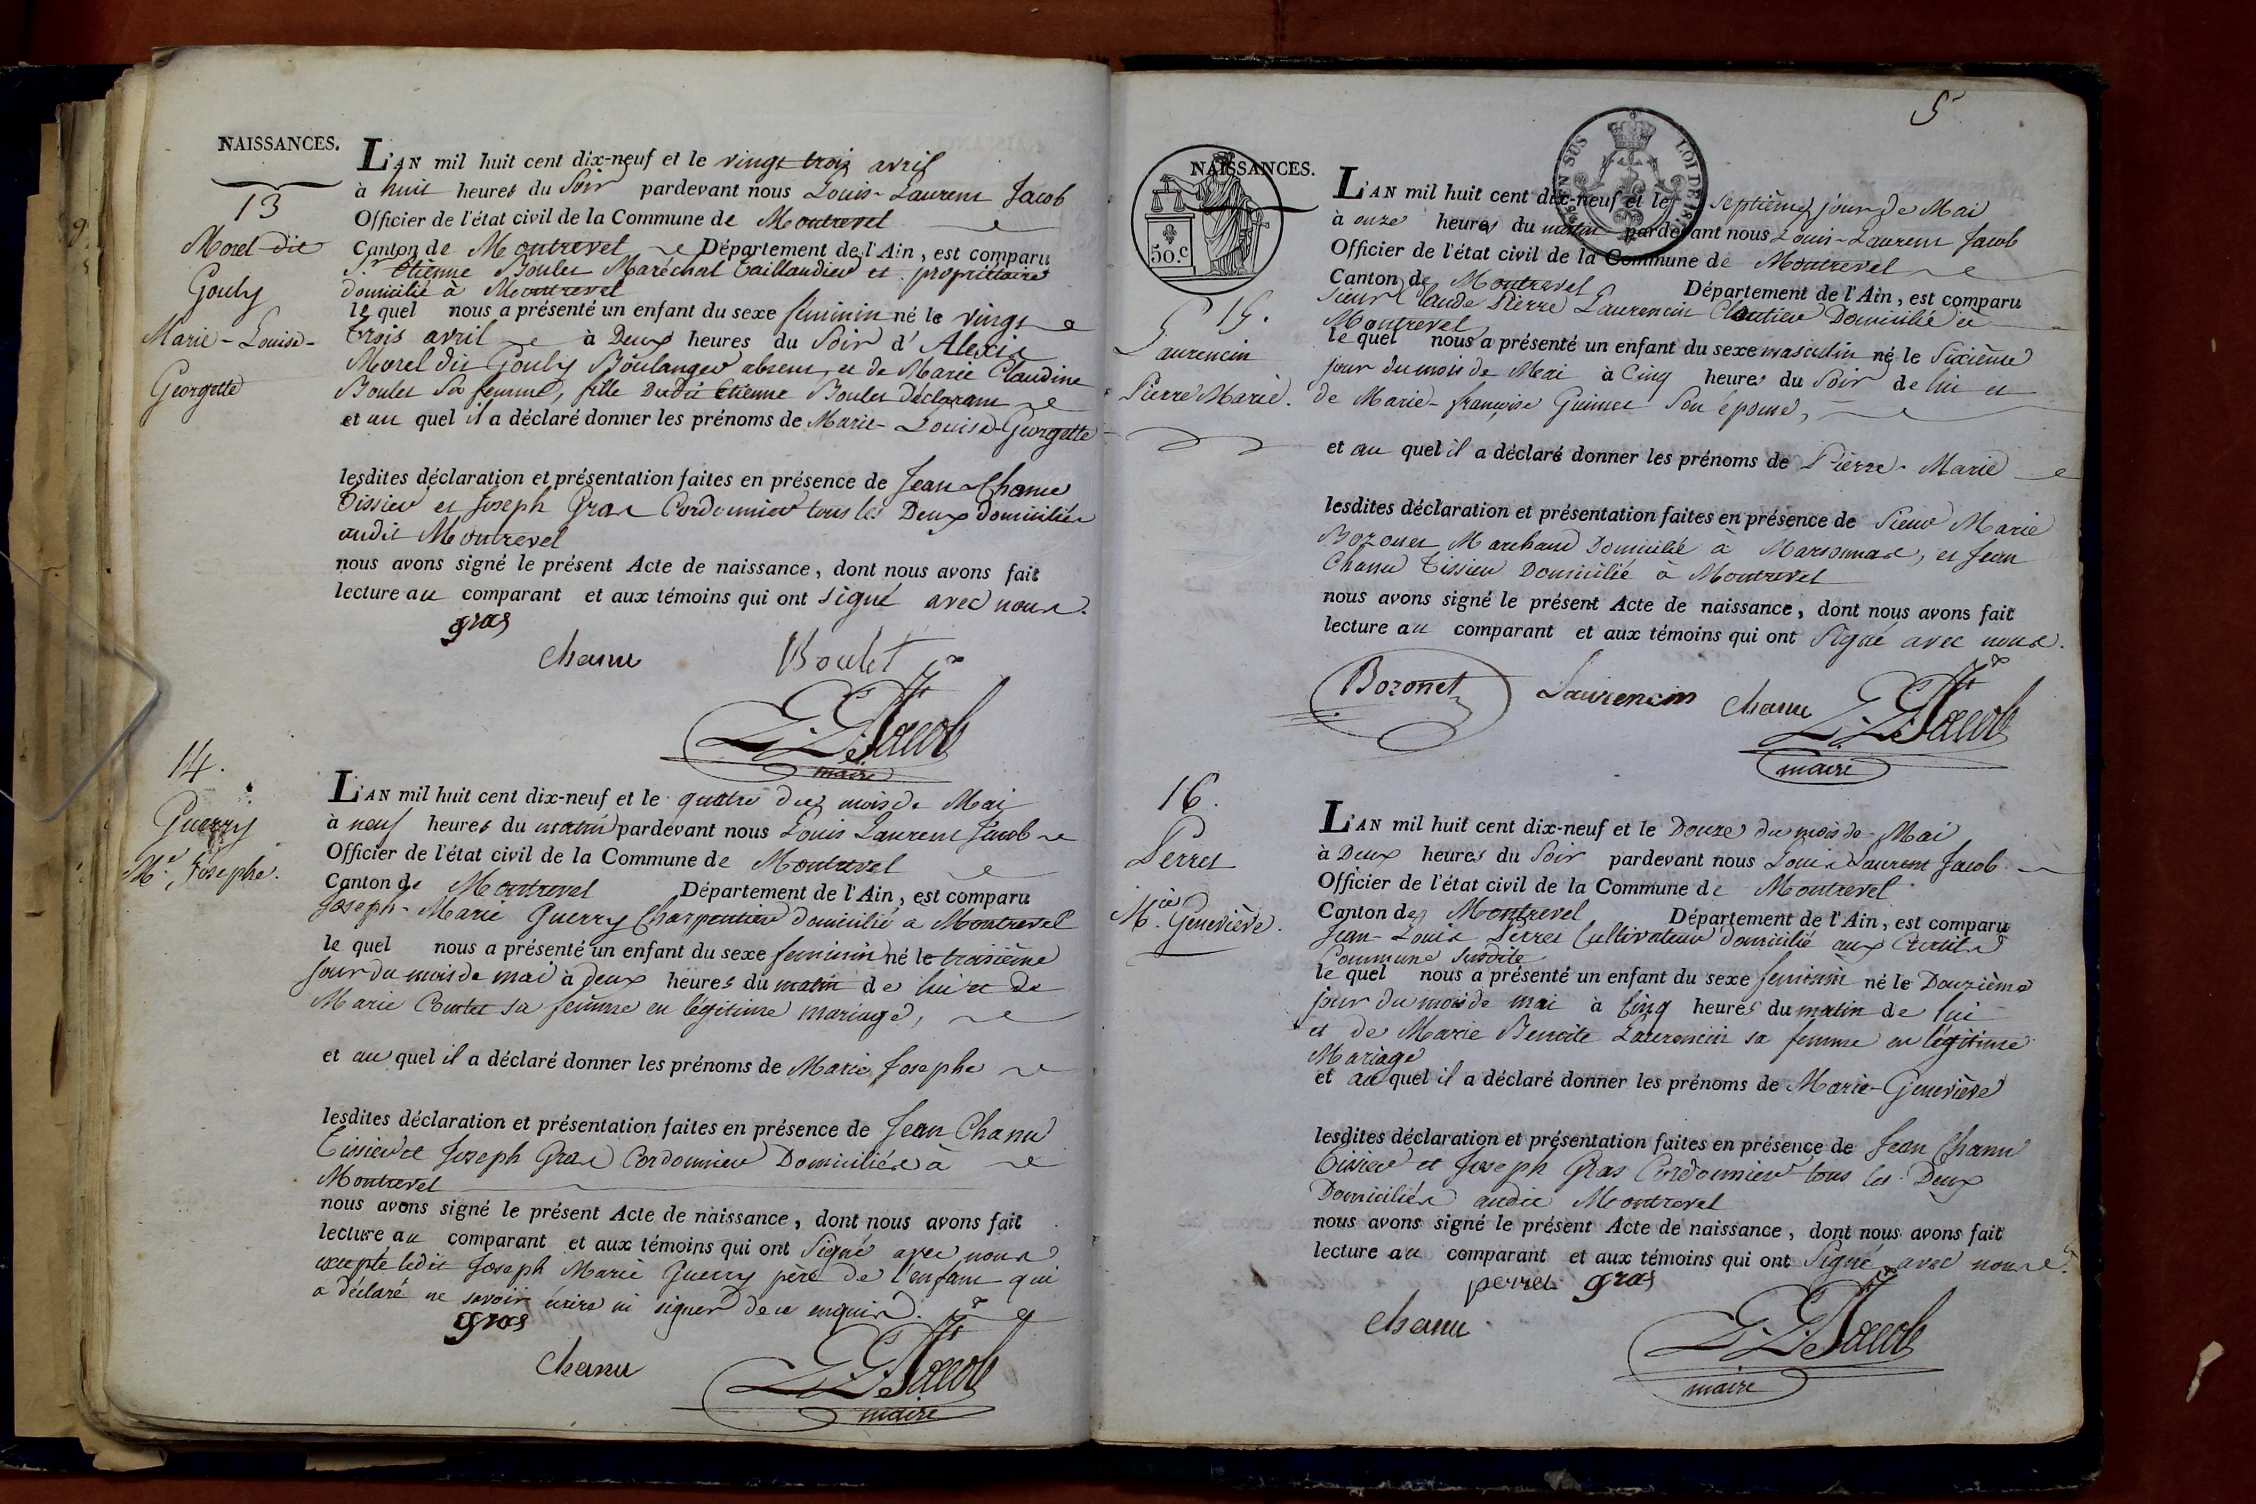 NAISSANCES.
13
Morel dit
Gouly
Marie-Louise-
Georgette
L'AN mil huit cent dix-neuf et le vingt trois avril
à huit heures du Soir pardevant nous Louis-Laurent Jacob
Officier de l'état civil de la Commune de Montrevel
Canton de Montrevel Département de l'Ain, est comparu
Sr Etienne Boulet Maréchal Taillandier et propriétaire
domicilié à Montrevel
le quel nous a présenté un enfant du sexe féminin né le vingt
trois avril à Deux heures du Soir d'Alexis
Morel dit Gouly Boulanger absent, et de Marie Claudine
Boulet Sa femme, fille Dudit Etienne Boulet Déclarant
et au quel il a déclaré donner les prénoms de Marie-Louise-Georgette
lesdites déclaration et présentation faites en présence de Jean Chanu
Tissier et Joseph Gras Cordonnier tous les Deux domiciliés
audit Montrevel
nous avons signé le présent Acte de naissance, dont nous avons fait
lecture au comparant et aux témoins qui ont signé avec nous.
gras
Chanu Boulet
L. L. Jacob
maire
14.
Guerry
Mie Josephe.
L'AN mil huit cent dix-neuf et le quatre du mois de Mai
à neuf heures du matin pardevant nous Louis Laurent Jacob
Officier de l'état civil de la Commune de Montrevel
Canton de Montrevel Département de l'Ain, est comparu
Joseph-Marie Guerry Charpentier domicilié a Montrevel
le quel nous a présenté un enfant du sexe feminin né le troisième
Jour du mois de mai à deux heures du matin de lui et de
Marie Coutet sa femme en légitime mariage,
et au quel il a déclaré donner les prénoms de Marie Josephe
lesdites déclaration et présentation faites en présence de Jean Chanu
Tissier et Joseph Gras Cordonnier Domiciliés à
Montrevel
nous avons signé le présent Acte de naissance, dont nous avons fait
lecture au comparant et aux témoins qui ont Signé avec nous
excepté ledit Joseph Marie Guerry père de l'enfant qui
a déclaré ne savoir écrire ni signer de ce enquis.
gras
Chanu
L. L. Jacob
maire
5
NAISSANCES.
50.c
EN SUS
LOI DE 18
15.
Laurencin
Pierre Marie.
L'AN mil huit cent dix-neuf et le Septième jour de Mai
à onze heures du matin pardevant nous Louis-Laurent Jacob
Officier de l'état civil de la Commune de Montrevel
Canton de Montrevel Département de l'Ain, est comparu
Sieur Claude Pierre Laurencin Cloutier Domicilié à
Montrevel
le quel nous a présenté un enfant du sexe masculin né le Sixième
jour du mois de Mai à Cinq heures du Soir de lui et
de Marie-françoise Guimet Son épouse,
et au quel il a déclaré donner les prénoms de Pierre-Marie
lesdites déclaration et présentation faites en présence de Sieur Marie
Bozonet Marchand Domicilié à Marsonnas, et Jean
Chanu Tissier Domicilié à Montrevel
nous avons signé le présent Acte de naissance, dont nous avons fait
lecture au comparant et aux témoins qui ont Signé avec nous.
Bozonet Laurencin Chanu
L. L. Jacob
maire
16.
Perret
Mie Geneviève.
L'AN mil huit cent dix-neuf et le Douze du mois de Mai
à Deux heures du Soir pardevant nous Louis Laurent Jacob
Officier de l'état civil de la Commune de Montrevel
Canton de Montrevel Département de l'Ain, est comparu
Jean-Louis Perret Cultivateur domicilié aux
Commune susdite
le quel nous a présenté un enfant du sexe feminin né le Douzième
jour du mois de mai à Cinq heures du matin de lui
et de Marie Benoite Laurencin sa femme en légitime
Mariage
et au quel il a déclaré donner les prénoms de Marie-Geneviève
lesdites déclaration et présentation faites en présence de Jean Chanu
Tissier et Joseph Gras Cordonnier tous les Deux
Domiciliés audit Montrevel
nous avons signé le présent Acte de naissance, dont nous avons fait
lecture au comparant et aux témoins qui ont Signé avec nous.
perret gras
Chanu
L. L. Jacob
maire